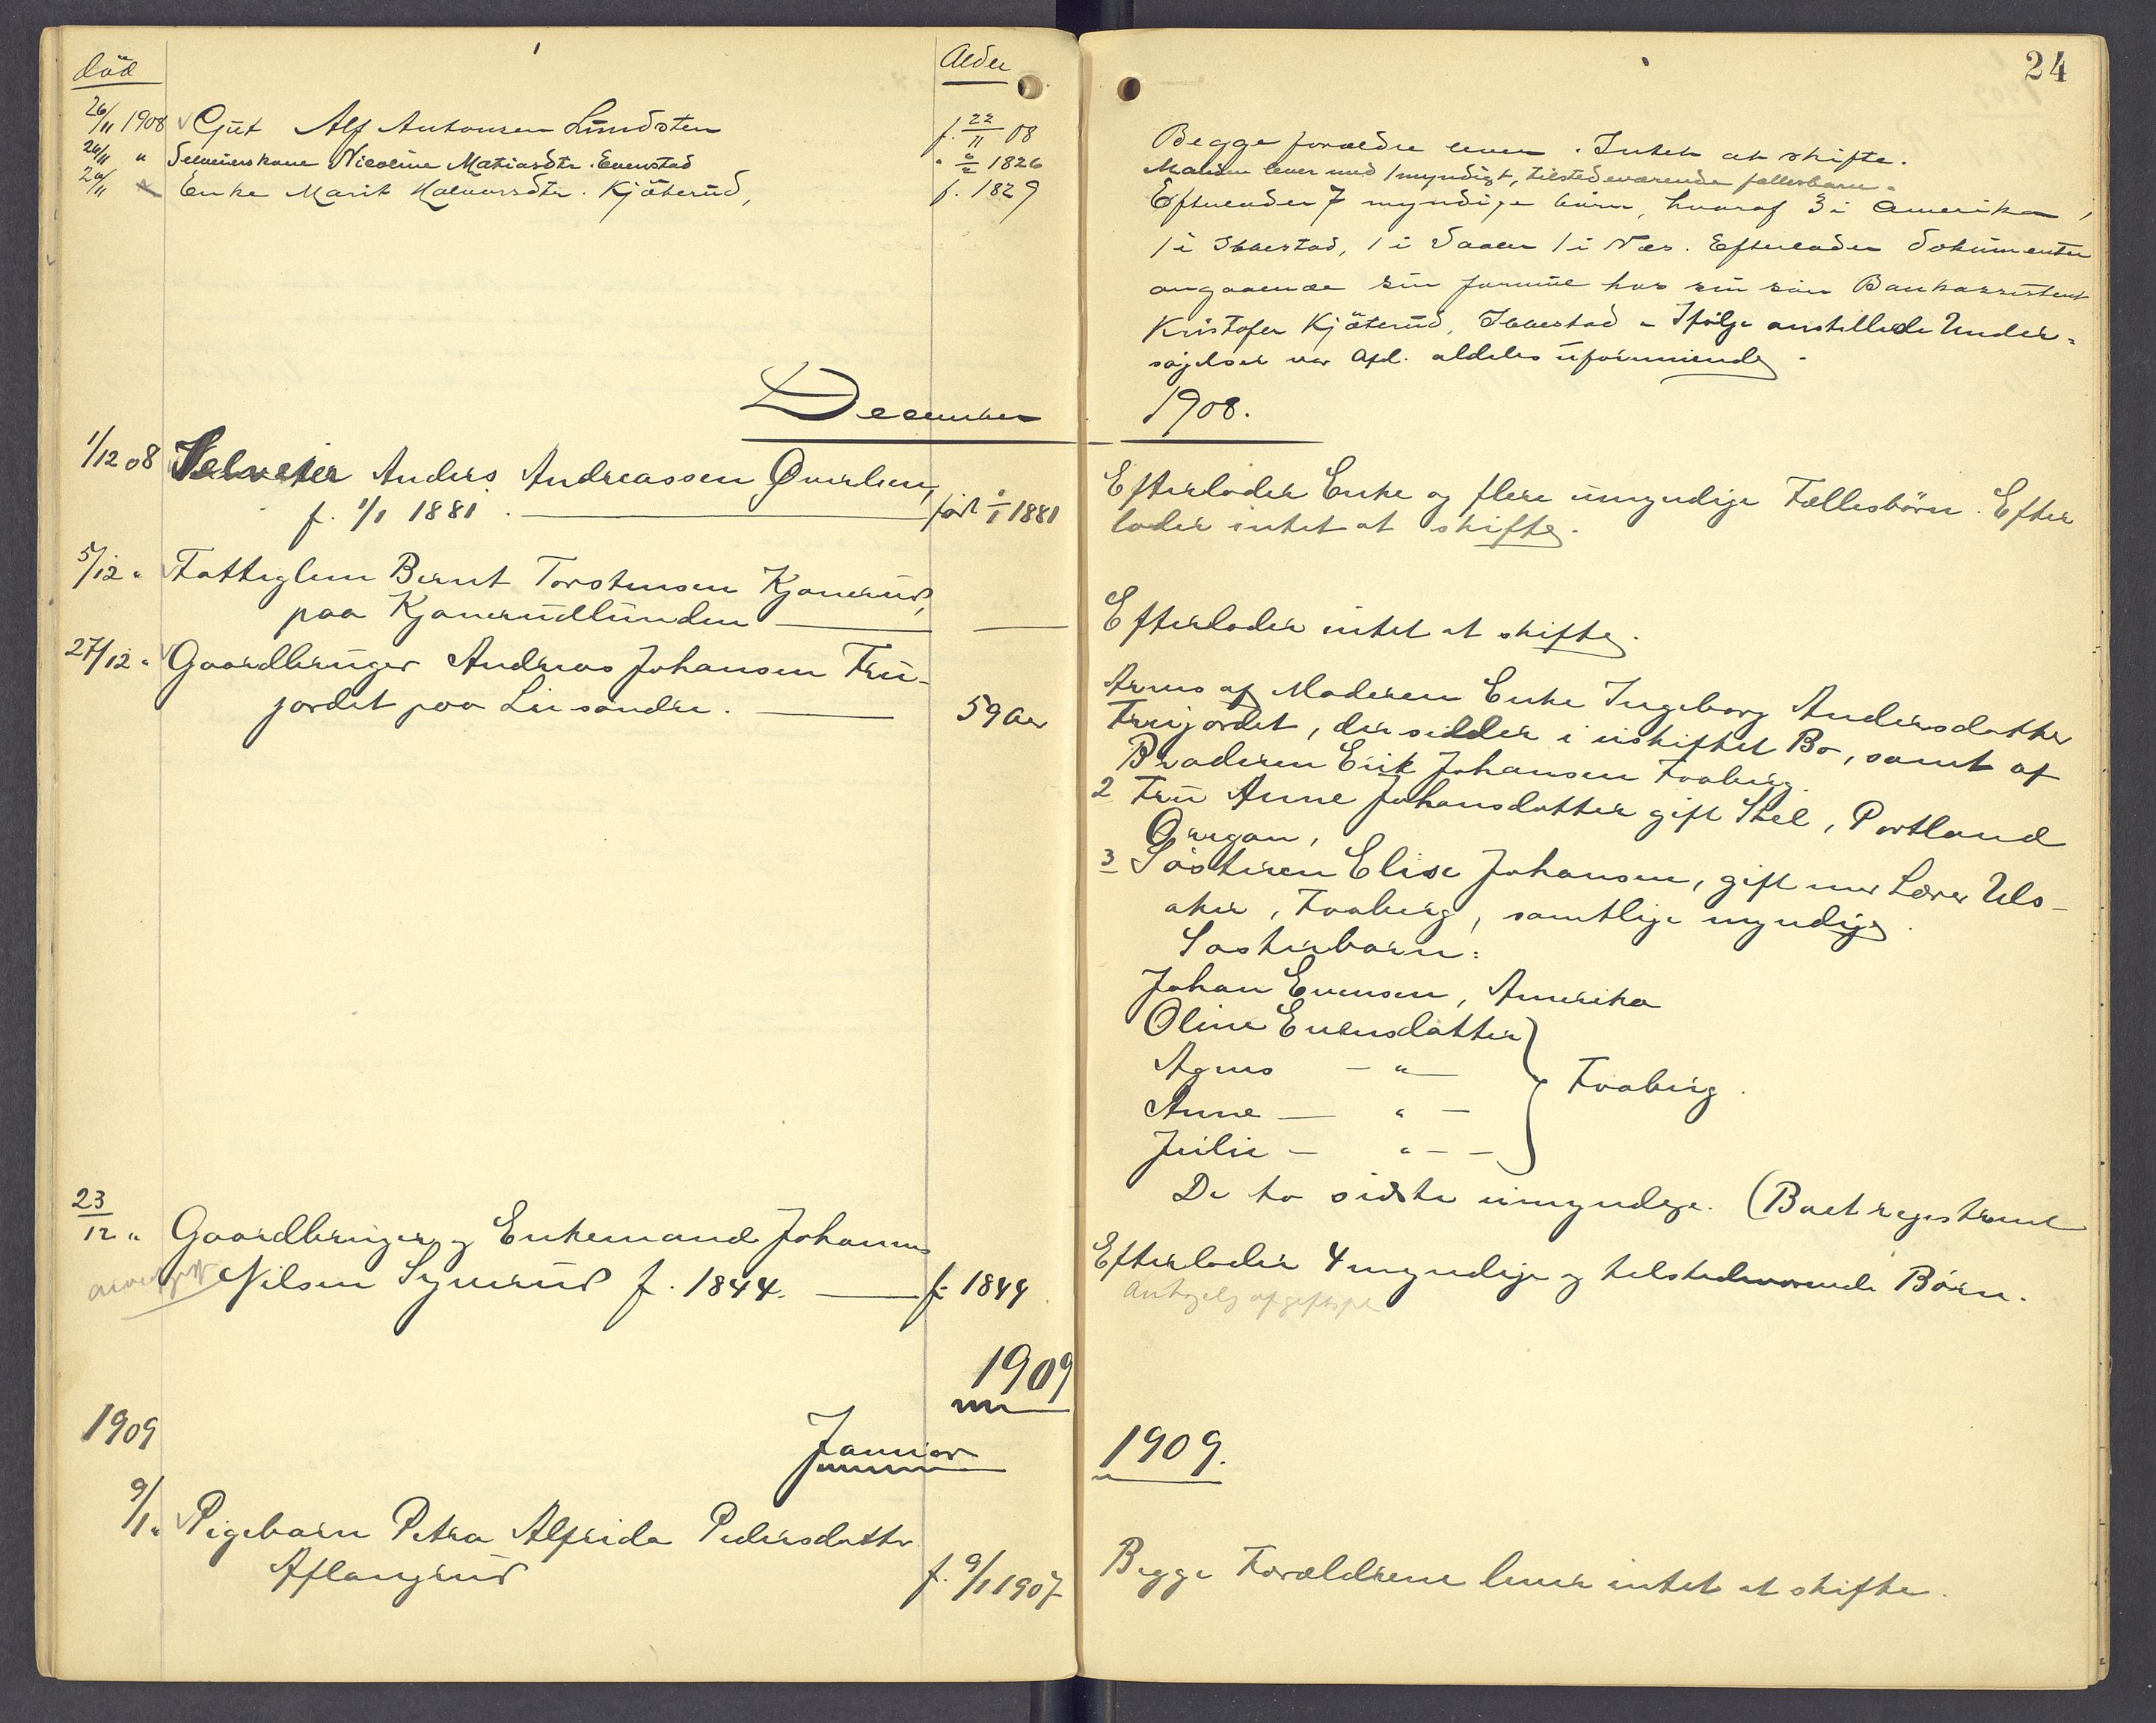 död
Alder
24
26/11 1908 Gut Alf Antonsen Lundsten
f. 22/11 08
Begge forældre lever. Intet at skifte.
26/11 " Selveierskone Nicoline Matiasdtr. Evenstad
" 6/2 1826
Manden lever med 1 myndigt, tilstedeværende fællesbarn.
20/11 Enke Marit Halvorsdtr. Kjöterud,
f. 1829
Efterlader 7 myndige börn, hvoraf 3 i Amerika,
1 i 1 i Vaaler 1 i Næs. Efterlader dokumenter
angaaende sin formue hos sin sön Bankassistent
Kristofer Kjöterud, Ifölge anstillede Under-
søgelser var Afd. aldeles uformuende.
December
1908.
1/12 08 Selveier Anders Andreassen Øverlien,
f. 1/1 1881
född 1/1 1881
Efterlader Enke og flere umyndige Fællesbörn. Efter
lader intet at skifte.
5/12 " Fattiglem Bernt Torstensen Kjonerud,
paa Kjonerudlunden
Efterlader intet at skifte.
27/12 " Gaardbruger Andreas Johansen Fru-
jordet paa Lie söndre.
59 Aar
Arves af Moderen Enke Ingeborg Andersdatter
Frujordet, der sidder i uskiftet Bo, samt af
Broderen Erik Johansen Faaberg.
2 Fru Anne Johansdatter gift Stel, Portland
Oregon,
3 Søsteren Elise Johansen, gift med Lærer Uls-
aker, Faaberg, samtlige myndige.
Søsterbørn:
Johan Evensen, Amerika
Oline Evensdatter
Agnes — " —
Faaberg.
Anne — " —
Julie — " — —
De to sidste umyndige. (Boet registreret
23/12 " Gaardbruger og Enkemand Johannes
Nilsen Synerud f. 1844.
f. 1844
Efterlader 4 myndige og tilstedeværende Børn.
1909
1909
Januar
1909.
9/1 " Pigebarn Petra Alfrida Pedersdatter
Aflangrud
f. 9/1 1907
Begge Forældrene lever intet at skifte.